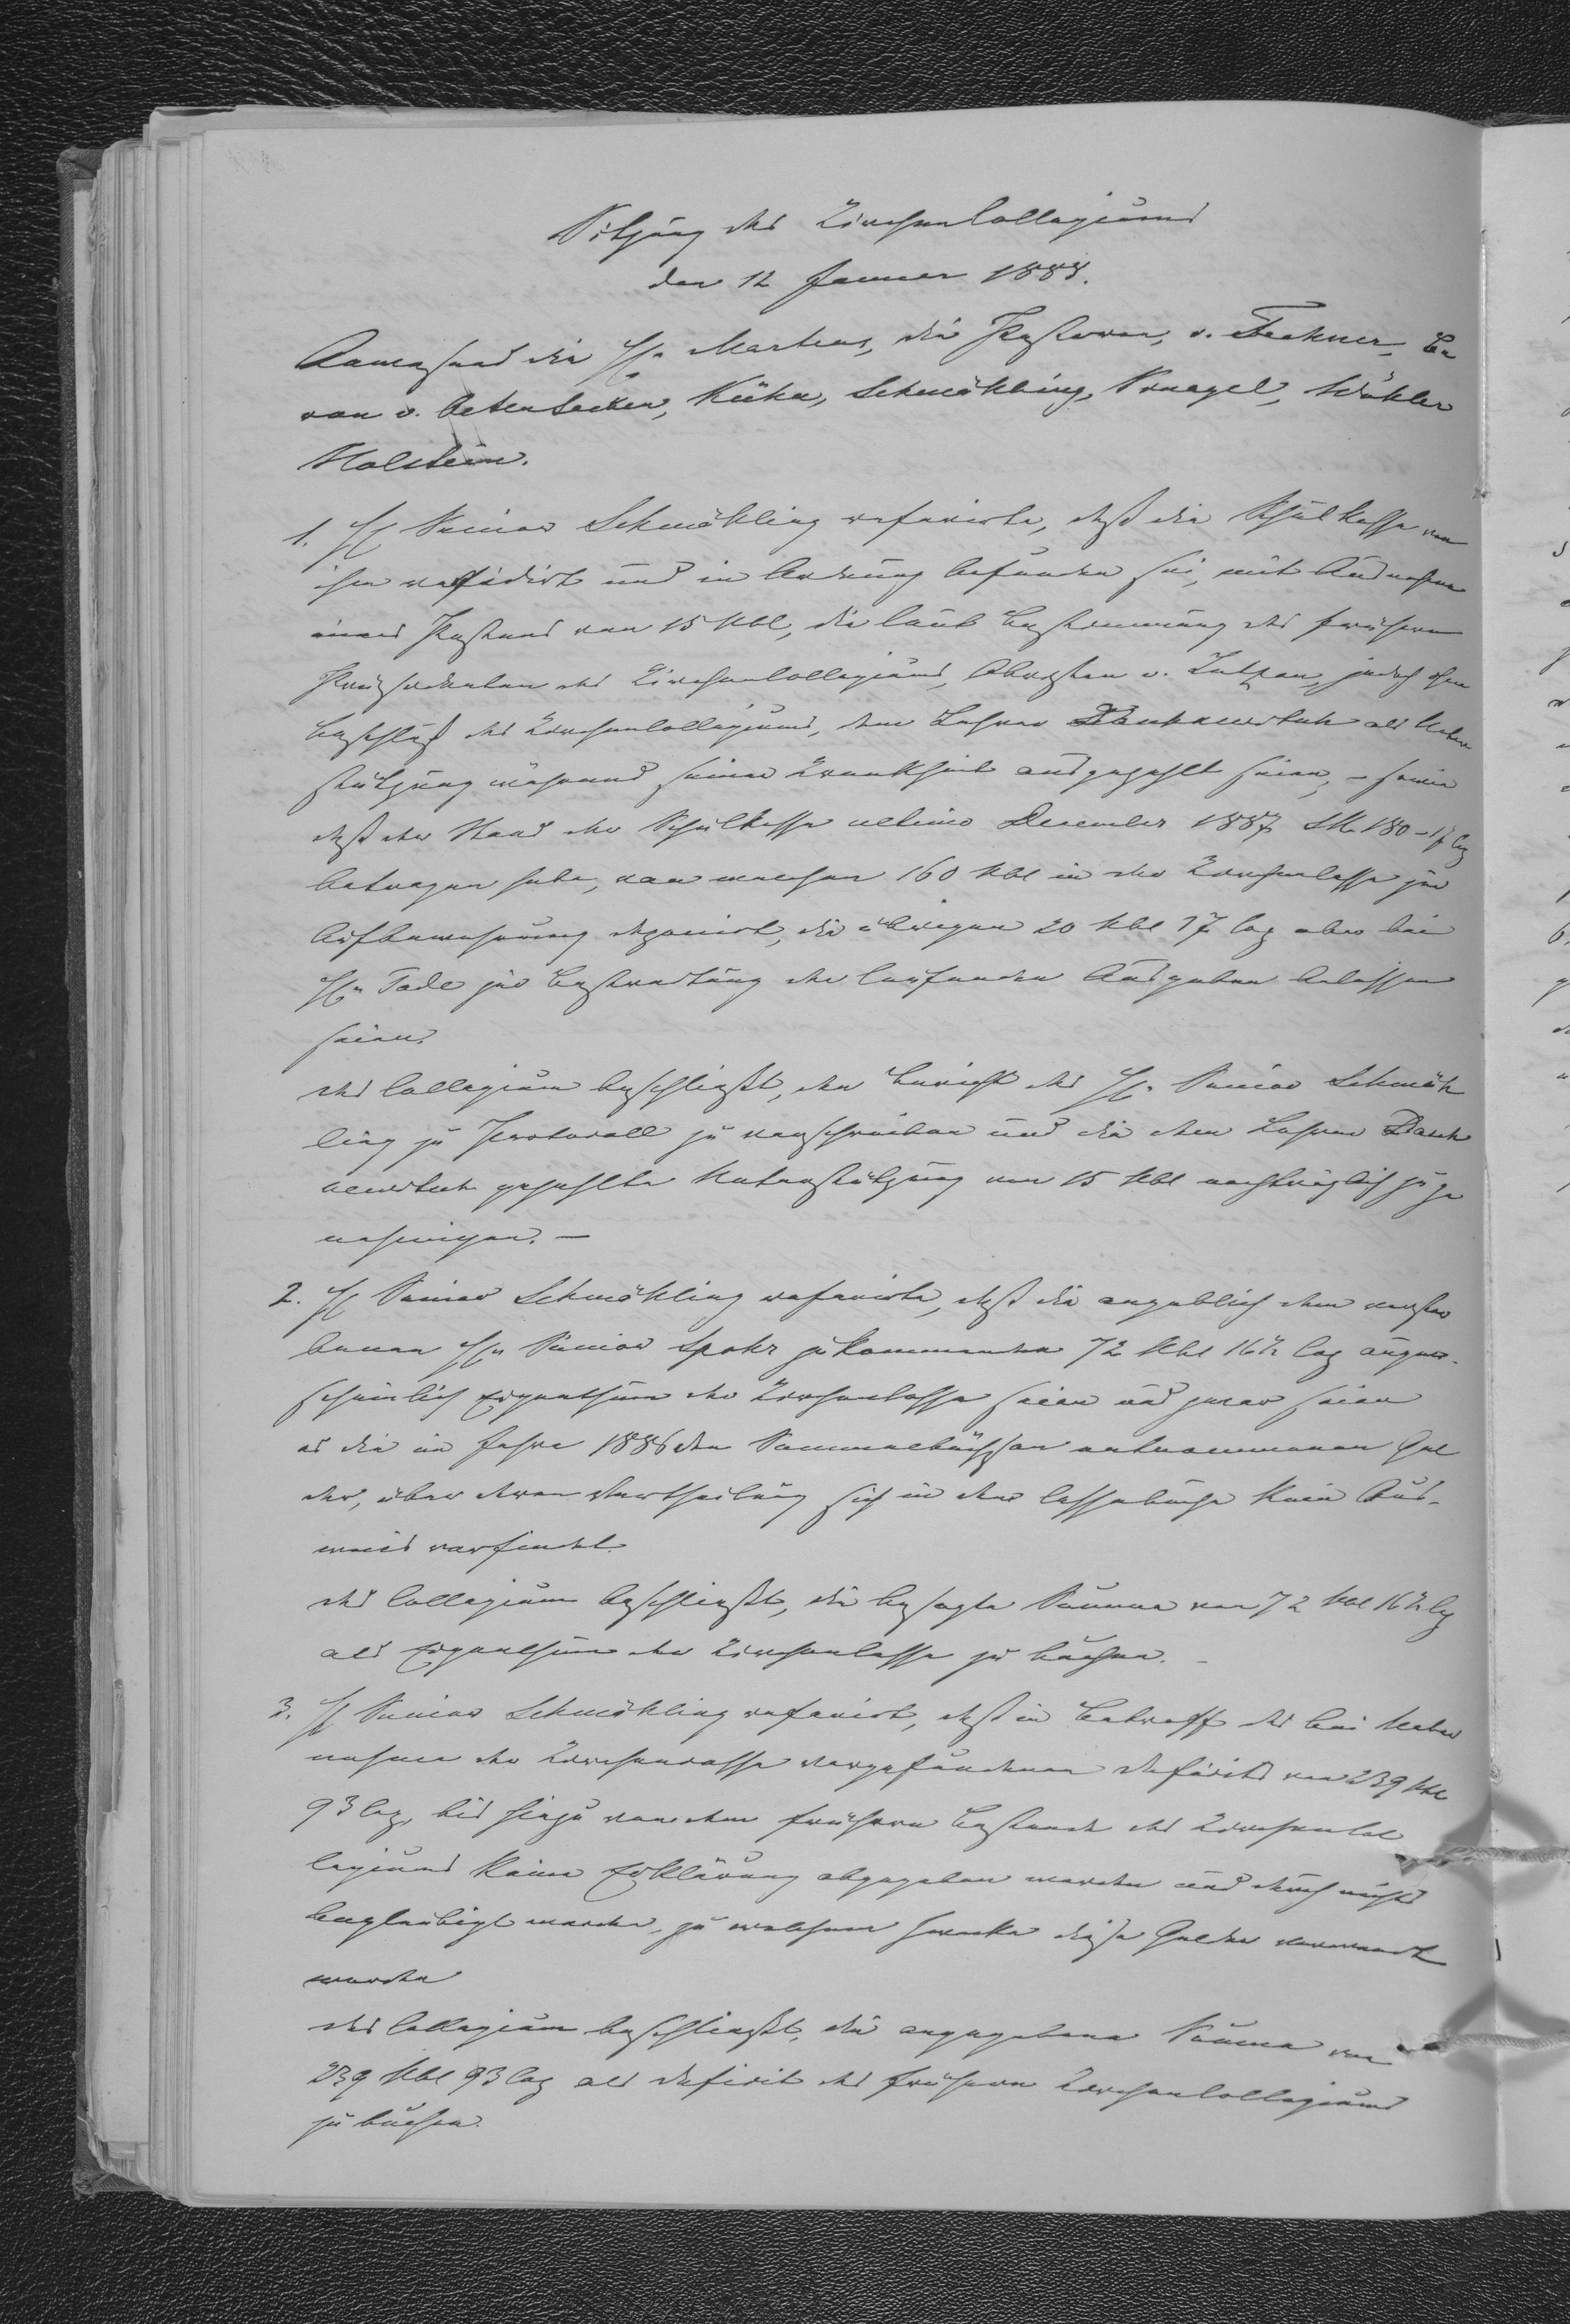 Sitzung des Kirchencollegiums
den 12 Januar 1888.
Anwesend die HH. Martens, die Pastoren, v. Feckner, Ba
ron v. Osten Sacken, Kühn, Schmähling, Wöhler
Holstein.
1. H Senior Schmähling referirte, daß die Schulkasse von
ihm revidirt und in Ordnung befunden sei, mit Ausnahme
eines Postens von 15 Rbl, die laut Bestimmung des frühern
Präsidenten des Kirchencollegiums, Obristen v. jedoch ohne
Beschluß des Kirchencollegiums, dem Lehrer als Unter
stützung während seiner Krankheit ausgezahlt seien, – sowie
daß der Stand der Schulkasse ultimo December 1887 SR. 180 – 17 Cop
betragen habe, von welchen 160 Rbl in der Kirchenkasse zur
Aufbewahrung deponirt, die übrigen 20 Rbl 17 Cop aber bei
Hn Tade zur Bestreitung der laufenden Ausgaben belassen
seien.
Das Collegium beschließt, den Bericht des H. Senior Schmäh
ling zu Protocoll zu verschreiben und die dem Lehrer
gezahlte Unterstützung von 15 Rbl nachträglich zu ge
nehmigen. –
2. H Senior Schmähling referirte, daß die angeblich dem verstor
benen Hn Senior Spohr zukommenden 72 Rbl 16½ Cop augen-
scheinlich Eigenthum der Kirchenkasse seien und zwar seien
es die im Jahre 1886 den Sammelbüchsen entnommenen Gel
der, über deren Vertheilung sich in dem Cassabuche kein Aus-
weis vorfindet.
Das Collegium beschließt, die besagte Summa von 72 Rbl 16½ Cop
als Eigenthum der Kirchenkasse zu buchen. –
3. H Senior Schmähling referirt, daß in Betreff des bei Ueber
nahme der Kirchencasse vorgefundenen Deficits von 239 Rbl
93 Cop, bis hiezu von dem frühern Bestande des Kirchencol
legiums keine Erklärung abgegeben worden und durch nichts
beglaubigt worden, zu welchem Zwecke diese Gelder verwandt
worden
Das Collegium beschließt, die angegebene Summa von
239 Rbl 93 Cop als Deficit des frühern Kirchencollegiums
zu buchen.